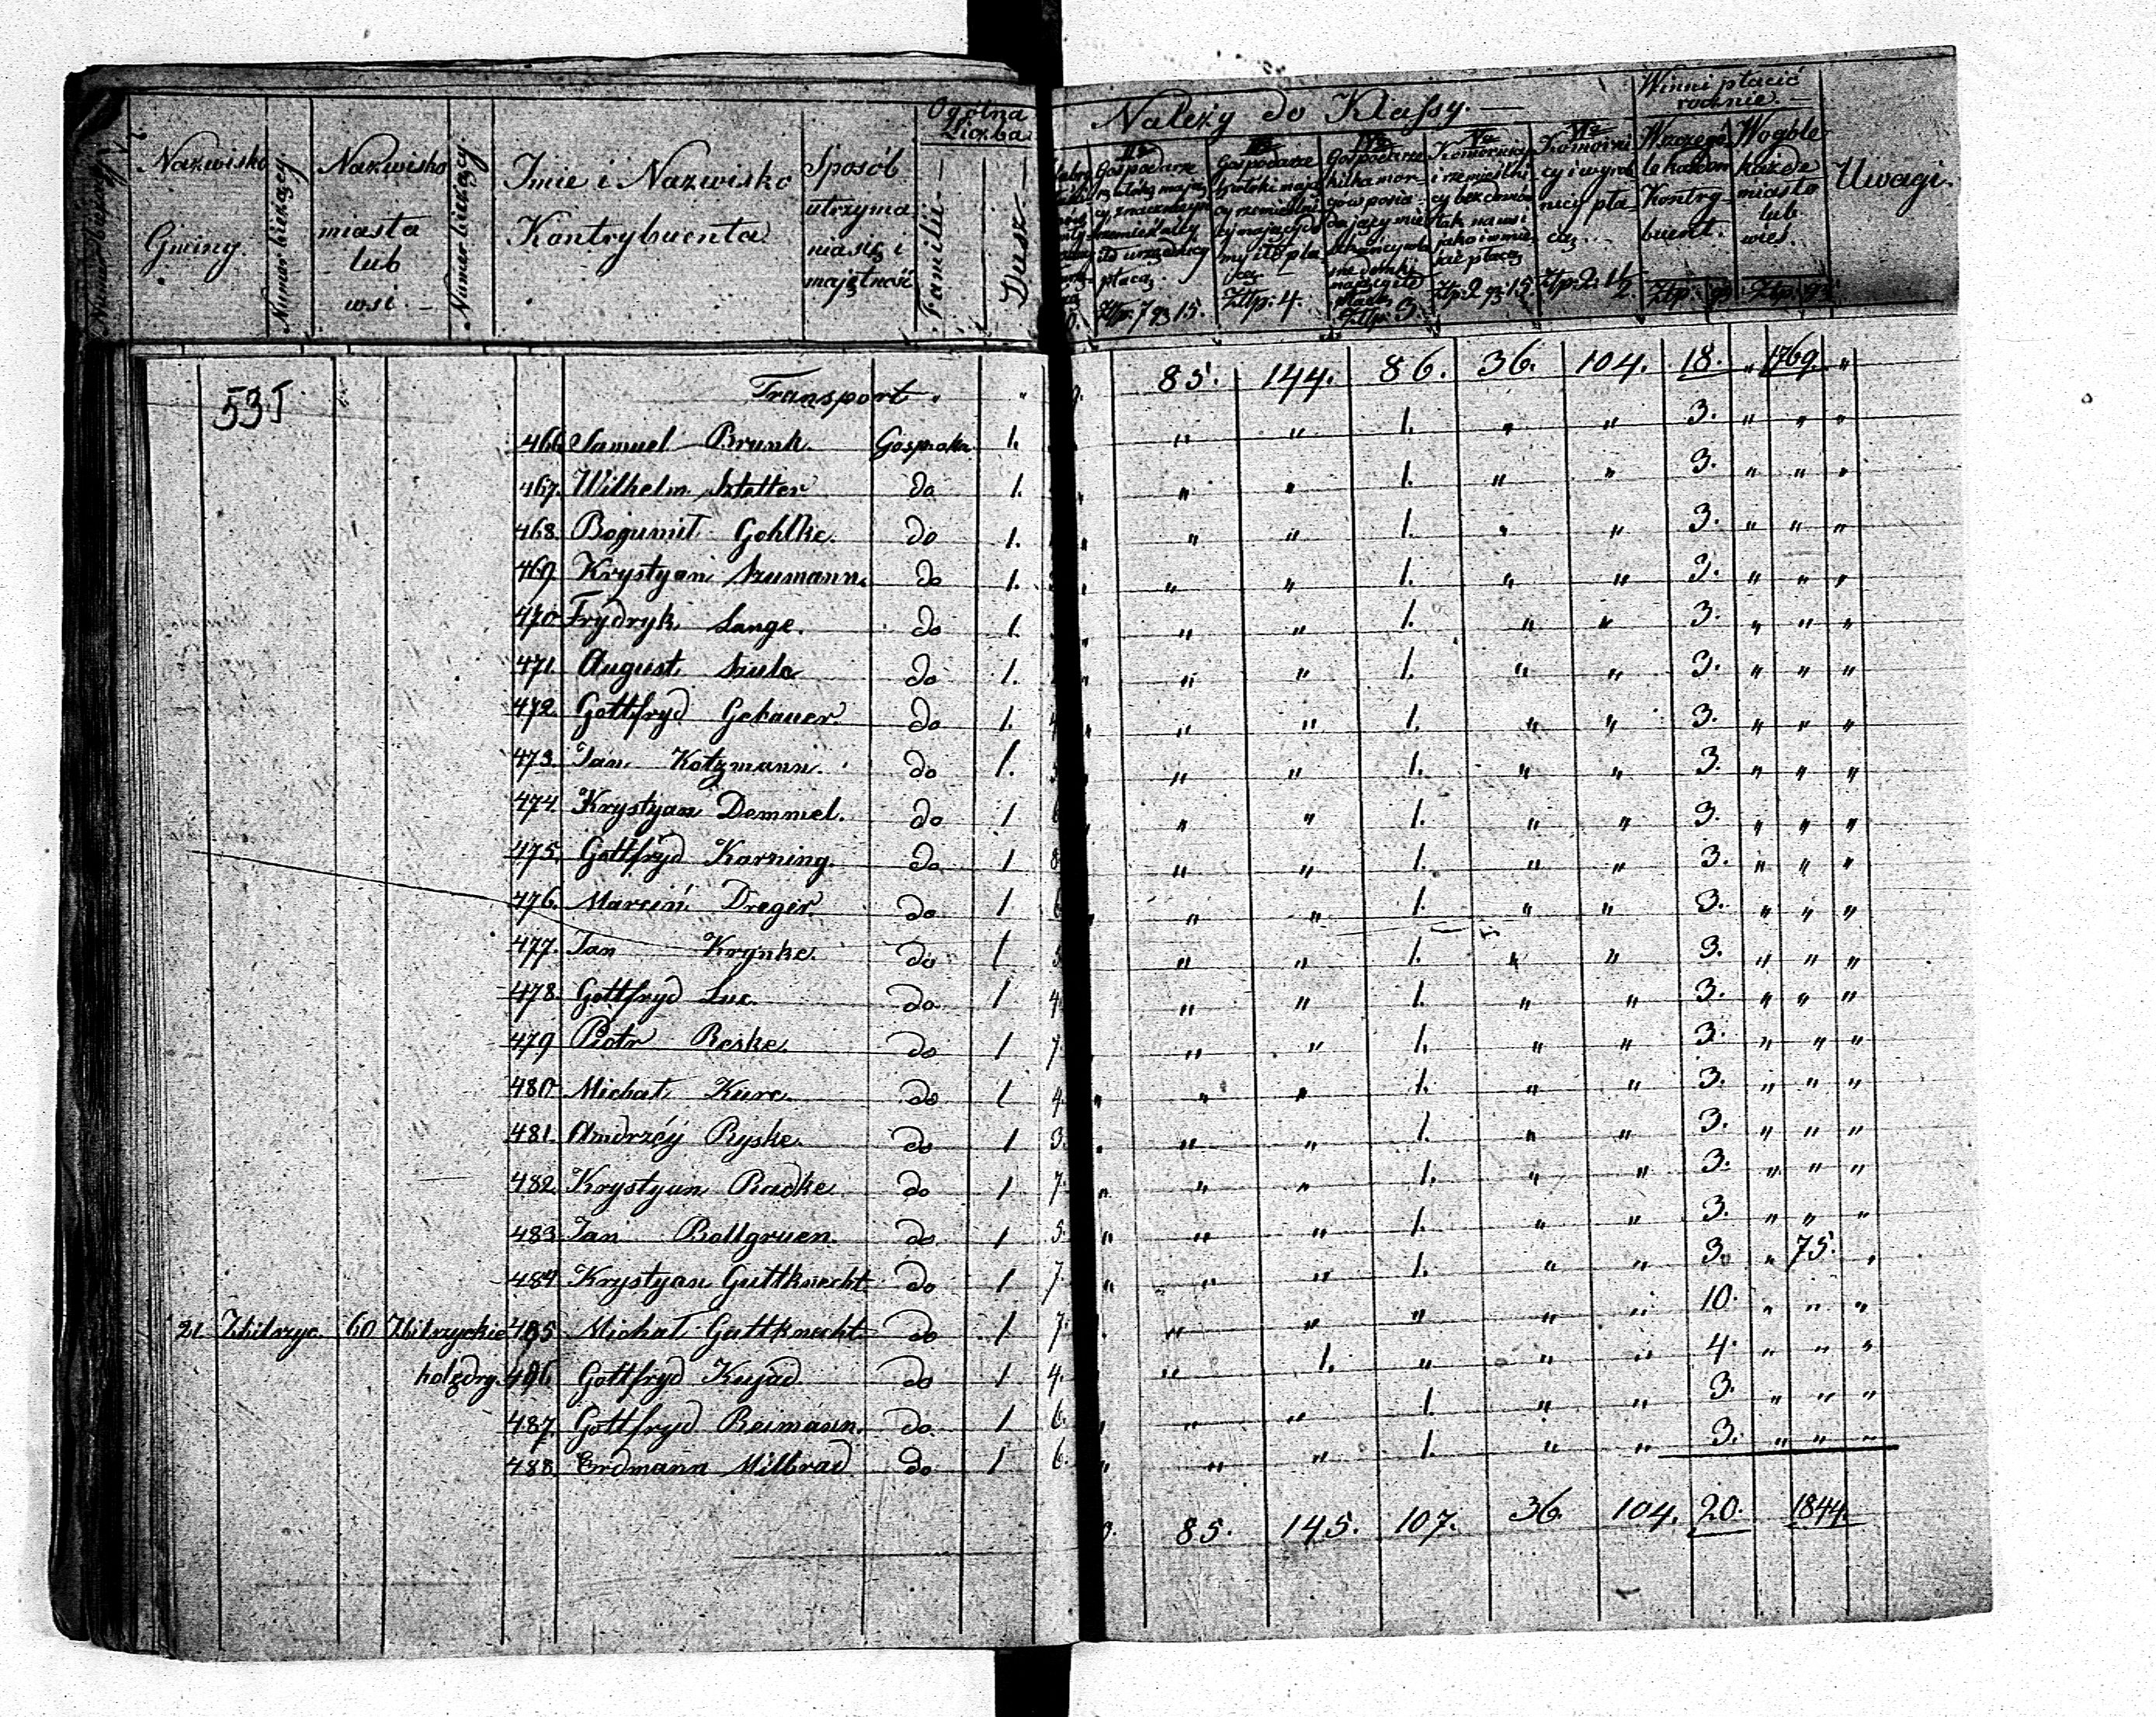 Nazwisko Gminy.
Numer bieżący
Nazwisko miasta lub wsi
Numer bieżący
Imie i Nazwisko Kontrybuenta
Sposób utrzymania się i majętność
Ogólna Liczba
Familii
Dusz
Należy do Klassy.
IIa Gospodarze płacą Ztp. 7 g 15.
Gospodarze Ztp. 4.
Gospodarze Ztp. 3.
Va Komornicy i rzemieślnicy bez domów tak na wsi jako i w mieście płacą Ztp. 2 g. 15
VIa Komornicy i wyrobnicy płacą Ztp. 2.
Winni płacić rocznie.
Kontrybuent. Ztp. gr.
Wogóle każde miasto lub wieś. Ztp. gr.
Uwagi.
535 Transport " " 85. 144. 86. 36. 104. 18. " 1769. "
466 Samuel Brunk. Gospodar. 1. " " 1. " " 3. " " "
467. Wilhelm Sztetter do 1. " " 1. " " 3. " " "
468. Bogumił Gohlke. do 1. " " 1. " " 3. " " "
469. Krystyan Szumann. do 1. " " 1. " " 3. " " "
470 Frydryk Lange. do 1. " " 1. " " 3. " " "
471. August Szulc do 1. " " 1. " " 3. " " "
472. Gottfryd Gebauer. do 1. " " 1. " " 3. " " "
473. Jan Kotzmann. do 1. " " 1. " " 3. " " "
474. Krystyan Demmel. do 1 " " 1. " " 3. " " "
475. Gottfryd Karning. do 1 8 " " 1. " " 3. " " "
476. Marcin Dreger. do 1 6 " " 1. " " 3. " " "
477. Jan Krynke. do 1 " " 1. " " 3. " " "
478. Gottfryd Luc. do 1 4 " " 1. " " 3. " " "
479 Piotr Reske. do 1 7. " " 1. " " 3. " " "
480 Michał Kurc. do 1 4. " " " 1. " " 3. " " "
481. Andrzéy Ryske. do 1 3. " " 1. " " 3. " " "
482 Krystyan Radke do 1 7. " " " 1. " " 3. " " "
483. Jan Bollgruen. do 1 5. " " " 1. " " 3. " " "
484 Krystyan Guttknecht do 1 7. " " " 1. " " 3. " 75. "
21 Zbitrzyc. 60 Zbitrzyckie 485 Michał Guttknecht do 1 7. " " " " " 10. " " "
holędry. 486 Gottfryd Kujad do 1 4. " 1. " " " 4. " " "
487. Gottfryd Reimann. do. 1 6. " " " 1. " " 3. " " "
488 Erdmann Milbrad do 1 6. " " " 1. " " 3. " " "
85. 145. 107. 36. 104. 20. 1844.